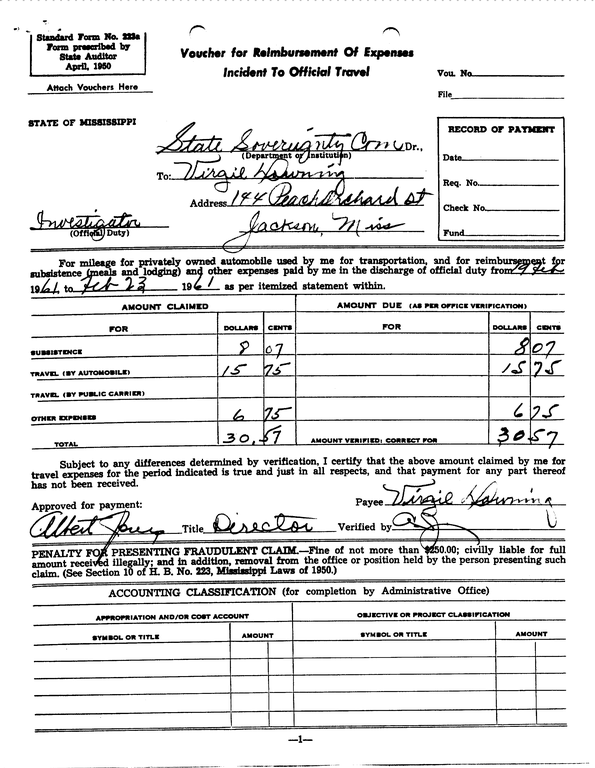 Standard Form No. 223a
Form prescribed by
State Auditor
April, 1950
Attach Vouchers Here
Voucher for Reimbursement Of Expenses
Incident To Official Travel
Vou. No.
File
STATE OF MISSISSIPPI
State Sovereignty Com Dr.,
(Department or Institution)
To: Virgil Downing
Address 144 Peach Orchard St
Jackson, Miss
Investigator
(Official Duty)
RECORD OF PAYMENT
Date
Req. No.
Check No.
Fund
For mileage for privately owned automobile used by me for transportation, and for reimbursement for
subsistence (meals and lodging) and other expenses paid by me in the discharge of official duty from 19 Feb
1961, to Feb 23 1961 as per itemized statement within.
AMOUNT CLAIMED AMOUNT DUE (AS PER OFFICE VERIFICATION)
FOR DOLLARS CENTS FOR DOLLARS CENTS
SUBSISTENCE 8 07 8 07
TRAVEL (BY AUTOMOBILE) 15 75 15 75
TRAVEL (BY PUBLIC CARRIER)
OTHER EXPENSES 6 75 6 75
TOTAL 30.57 AMOUNT VERIFIED: CORRECT FOR 30 57
Subject to any differences determined by verification, I certify that the above amount claimed by me for
travel expenses for the period indicated is true and just in all respects, and that payment for any part thereof
has not been received.
Approved for payment: Payee Virgil Downing
Albert Jones Title Director Verified by
PENALTY FOR PRESENTING FRAUDULENT CLAIM.—Fine of not more than $250.00; civilly liable for full
amount received illegally; and in addition, removal from the office or position held by the person presenting such
claim. (See Section 10 of H. B. No. 223, Mississippi Laws of 1950.)
ACCOUNTING CLASSIFICATION (for completion by Administrative Office)
APPROPRIATION AND/OR COST ACCOUNT OBJECTIVE OR PROJECT CLASSIFICATION
SYMBOL OR TITLE AMOUNT SYMBOL OR TITLE AMOUNT
—1—